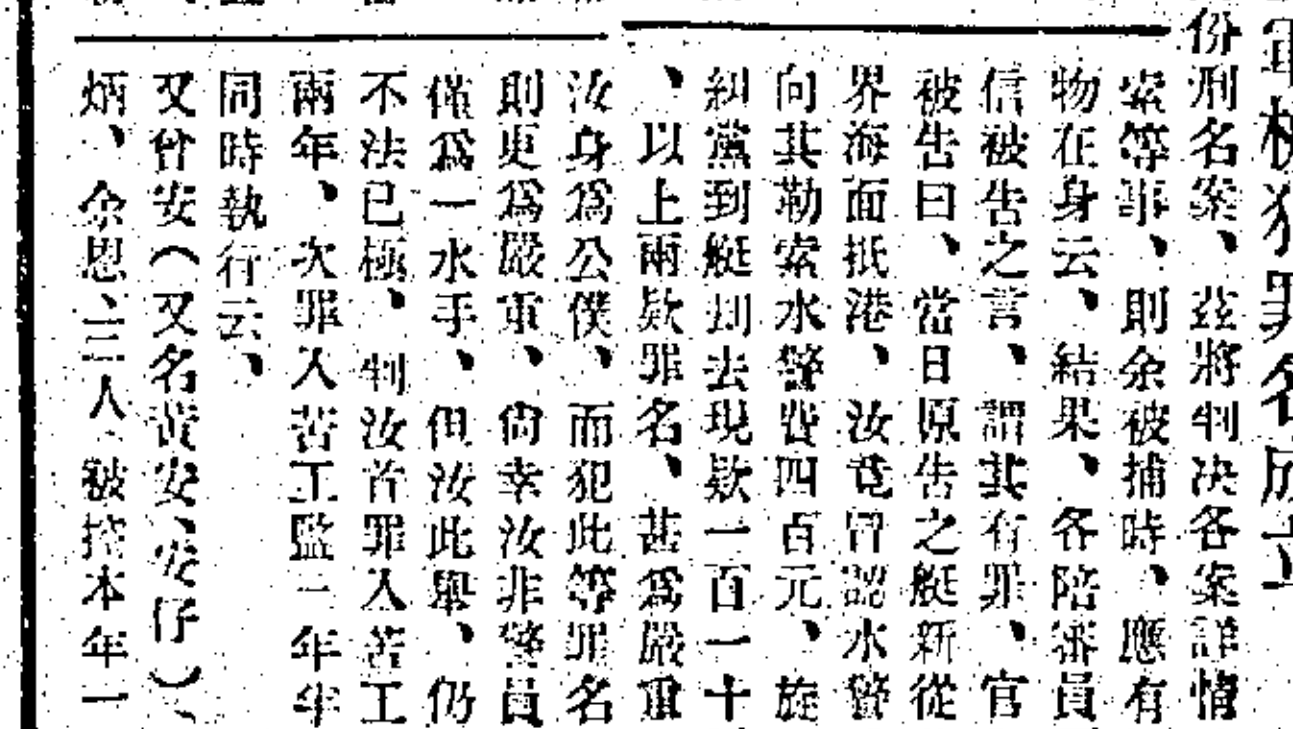 罪名成立
份刑名案、茲將判决各案詳情
索等事、則余被捕時、應有
物在身云、結果、各陪審員
信被告之言、謂其有罪、官
被告曰、當日原告之艇新從
界海面抵港、汝竟冒認水警
向其勒索水警費四百元、旋
糾黨到艇刦去現欵一百一十
、以上兩欵罪名、甚爲嚴重
汝身爲公僕、而犯此等罪名
則更爲嚴重、尙幸汝非警員
僅爲一水手、但汝此舉、仍
不法已極、判汝首罪入苦工
兩年、次罪入苦工監一年半
同時執行云、
又曾安（又名黃安、安仔）、
炳、余恩、三人、被控本年一